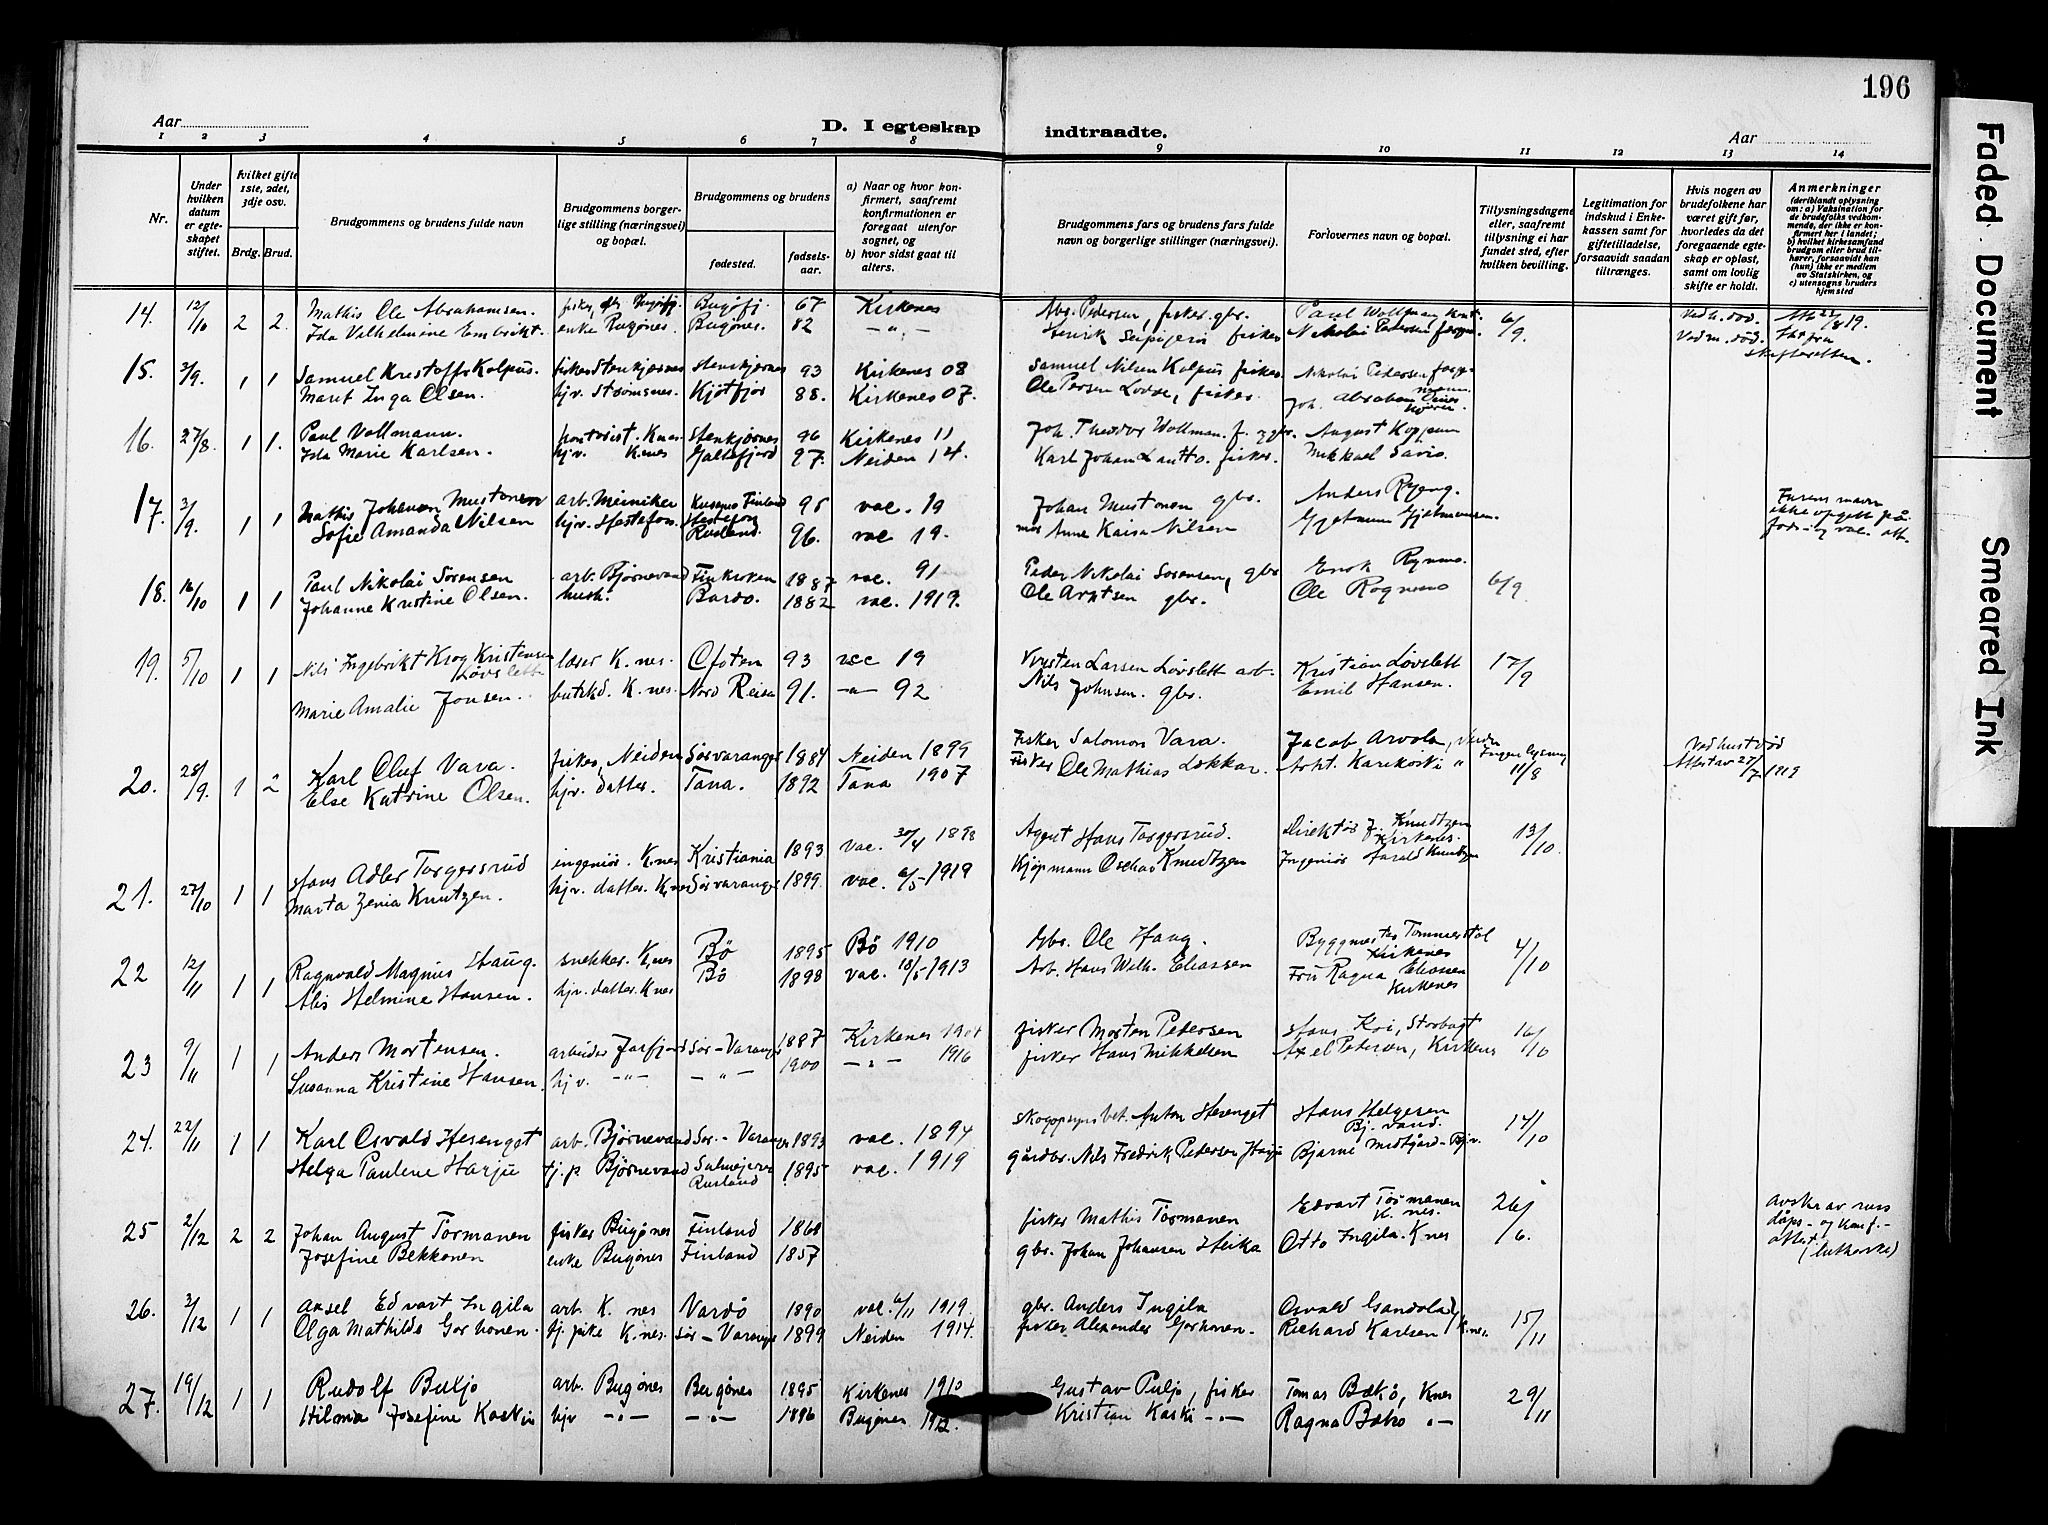 196
Aar
D. I egteskap indtraadte.
Aar
1 2 3 4 5 6 7 8 9 10 11 12 13 14
Nr.
Under hvilken datum er egteskapet stiftet.
Hvilket gifte 1ste, 2det, 3dje osv.
Brdg. Brud.
Brudgommens og brudens fulde navn
Brudgommens borgerlige stilling (næringsvei) og bopæl.
Brudgommens og brudens
fødested.
fødselsaar.
a) Naar og hvor konfirmert, saafremt konfirmationen er foregaat utenfor sognet, og
b) hvor sidst gaat til alters.
Brudgommens fars og brudens fars fulde navn og borgerlige stillinger (næringsvei).
Forlovernes navn og bopæl.
Tillysningsdagene eller, saafremt tillysning ei har fundet sted, efter hvilken bevilling.
Legitimation for indskud i Enkekassen samt for giftetilladelse, forsaavidt saadan tiltrænges.
Hvis nogen av brudefolkene har været gift før, hvorledes da det foregaaende egteskap er opløst, samt om lovlig skifte er holdt.
Anmerkninger (deriblandt oplysning om: a) Vaksination for de brudefolks vedkommende, der ikke er konfirmert her i landet; b) hvilket kirkesamfund brudgom eller brud tilhører, forsaavidt han (hun) ikke er medlem av Statskirken, og c) utensogns bruders hjemsted
14. 12/10 2 2. Mathis Ole Abrahamsen. Bugøfj. 67 Kirkenes Abr. Pedersen, fisker, gbr. Paul Wollman 6/9 Ved h. død.
Ida Vilhelmine enke Bugønes. Bugønes. 82 — " — Henrik fisker Nikolai Pedersen Ved m. død. fra skifteretten.
15. 3/9. 1 1 Samuel Kristoffs Kolpus. fisker Stenkjærnes Stenkjernes 93 Kirkenes 08 Samuel Nilsen Kolpus fisker Nikolai Pedersen
Maret Inga Olsen. hjv. Strømsnes. Kjøfjor 88. Kirkenes 07. Ole Persen fisker Joh. Abraham
16. 27/8. 1 1. Paul Vollmann. K.nes. Stenkjernes 96 Kirkenes 11 Joh. Theodor Wollman. August Koppen
Ida Marie Karlsen. hjv. K.nes 97. Neiden 14. Karl Johan Lautto. fisker. Mikkael Savio.
17. 3/9. 1 1 Mathis Johansen Mustonen arb. Finland 95 vac. 19 Johan Mustonen gbr. Anders Ryeng.
Sofie Amanda Nilsen hjv. Rusland. 96. vac 19. mor Anne Kaisa Nilsen
Farens navn ikke opgett på føds- og vac. att.
18. 16/10 1 1 Paul Nikolai Sørensen arb. Bjørnevand Finkroken 1887 vac. 91 Peder Nikolai Sørensen, gbr 6/9
Johanne Kristine Olsen. hush. Bardo. 1882 vac. 1919. Ole Arntsen gbr. Ole Rognmo
19. 5/10 1 1 Nils Ingebrikt Krog Kristensen Løvslett K.nes. Ofoten 93 vac 19 Larsen Løvslett arb. Kristian Løvslett 17/9
Marie Amalie Jonsen. K.nes. Nord Reisa 91. —"— 92 Nils Johnsen. gbr. Emil Hansen.
20. 28/9. 1 2 Karl Oluf Vara. fisker, Neiden Sørvaranger 1884 Neiden 1899 Fisker Salomon Vara. Jacob Arvola, Neiden Ingen lysning 11/8 Ved hust. død
Else Katrine Olsen. hjv. datter. Tana. 1892 Tana 1907 Fisker Ole Mathias Løkkar. Karikoski " Attest av 27/7 1919
21. 27/10 1 1 Hans Adler Torgersrud ingeniør. K.nes Kristiania 1893 vac. 30/4 1898 Agent Hans Torgersrud. Direktør J. Knudtzen Kirkenes. 13/10.
Marta Zenia Knutzen. hjv. datter. K.nes Sørvaranger 1899. vac. 6/5-1919 Kjøpmann Oschar Knudtzen Ingeniør Harald Knudtzen
22 12/11 1 1 Ragnvald Magnus Haug. snekker. K.nes Bø 1895 Bø 1910 Gbr. Ole Haug. Byggmester Tømmerstol Kirkenes 4/10
Alis Helmine Hansen. hjv. datter. K.nes Bø 1898 vac. 18/5-1913 Arb. Hans Wilh. Eliassen Fru Ragna Eliassen Kirkenes
23 9/11 1 1 Anders Mortensen. arbeider Jarfjord Sør-Varanger 1887 Kirkenes 1901 fisker Morten Pedersen Hans Kri, Storbugt 16/10
Susanna Kristine Hansen. hjv. —"— —"— 1900 —"— 1916 fisker Hans Mikkelsen Axel Petersen, Kirkenes
24. 22/11 1 1 Karl Osvald Hesenget arb. Bjørnevand Sør-Varanger 1893 vac. 1894 skogopsynsbet. Anton Hesenget Hans Helgesen Bj.vand. 14/10
Helga Paulene Harju tj.p Bjørnevand Rusland 1895 vac. 1919 gårdbr. Nils Fredrik Pedersen Harju Bjarne Midtgård - Bj.v.
25 2/12 2 2 Johan August Tormanen fisker Bugønes Finland 1868 fisker Mathis Tormanen Edvart Tormanen K.nes. 26/6.
Josefine Bekkonen enke Bugønes Finland 1857 gbr. Johan Johansen Heika Otto Ingila. K.nes
Avskr av russ dåps- og konf.-attest. (lutherske)
26. 3/12 1 1 Aksel Edvart Ingila arb. K.nes Vardø 1890 vac. 6/11 1919. gbr. Anders Ingila Osvald Gandola 15/11
Olga Mathilde Gorhonen. tj.pike K.nes. Sør-Varanger 1899 Neiden 1914. fisker Alexander Gorhonen. Richard Karlsen K.nes.
27. 19/12 1 1 Rudolf Buljo arb. Bugønes Bugønes 1895 Kirkenes 1910 Gustav Puljo, fisker Tomas Bækø, K.nes 29/11
Hilma Josefine Koskis hjv —"— —"— 1896 Bugønes 1912. Kristian Koski —"— Ragna Bækø "—
Faded Document
Smeared Ink